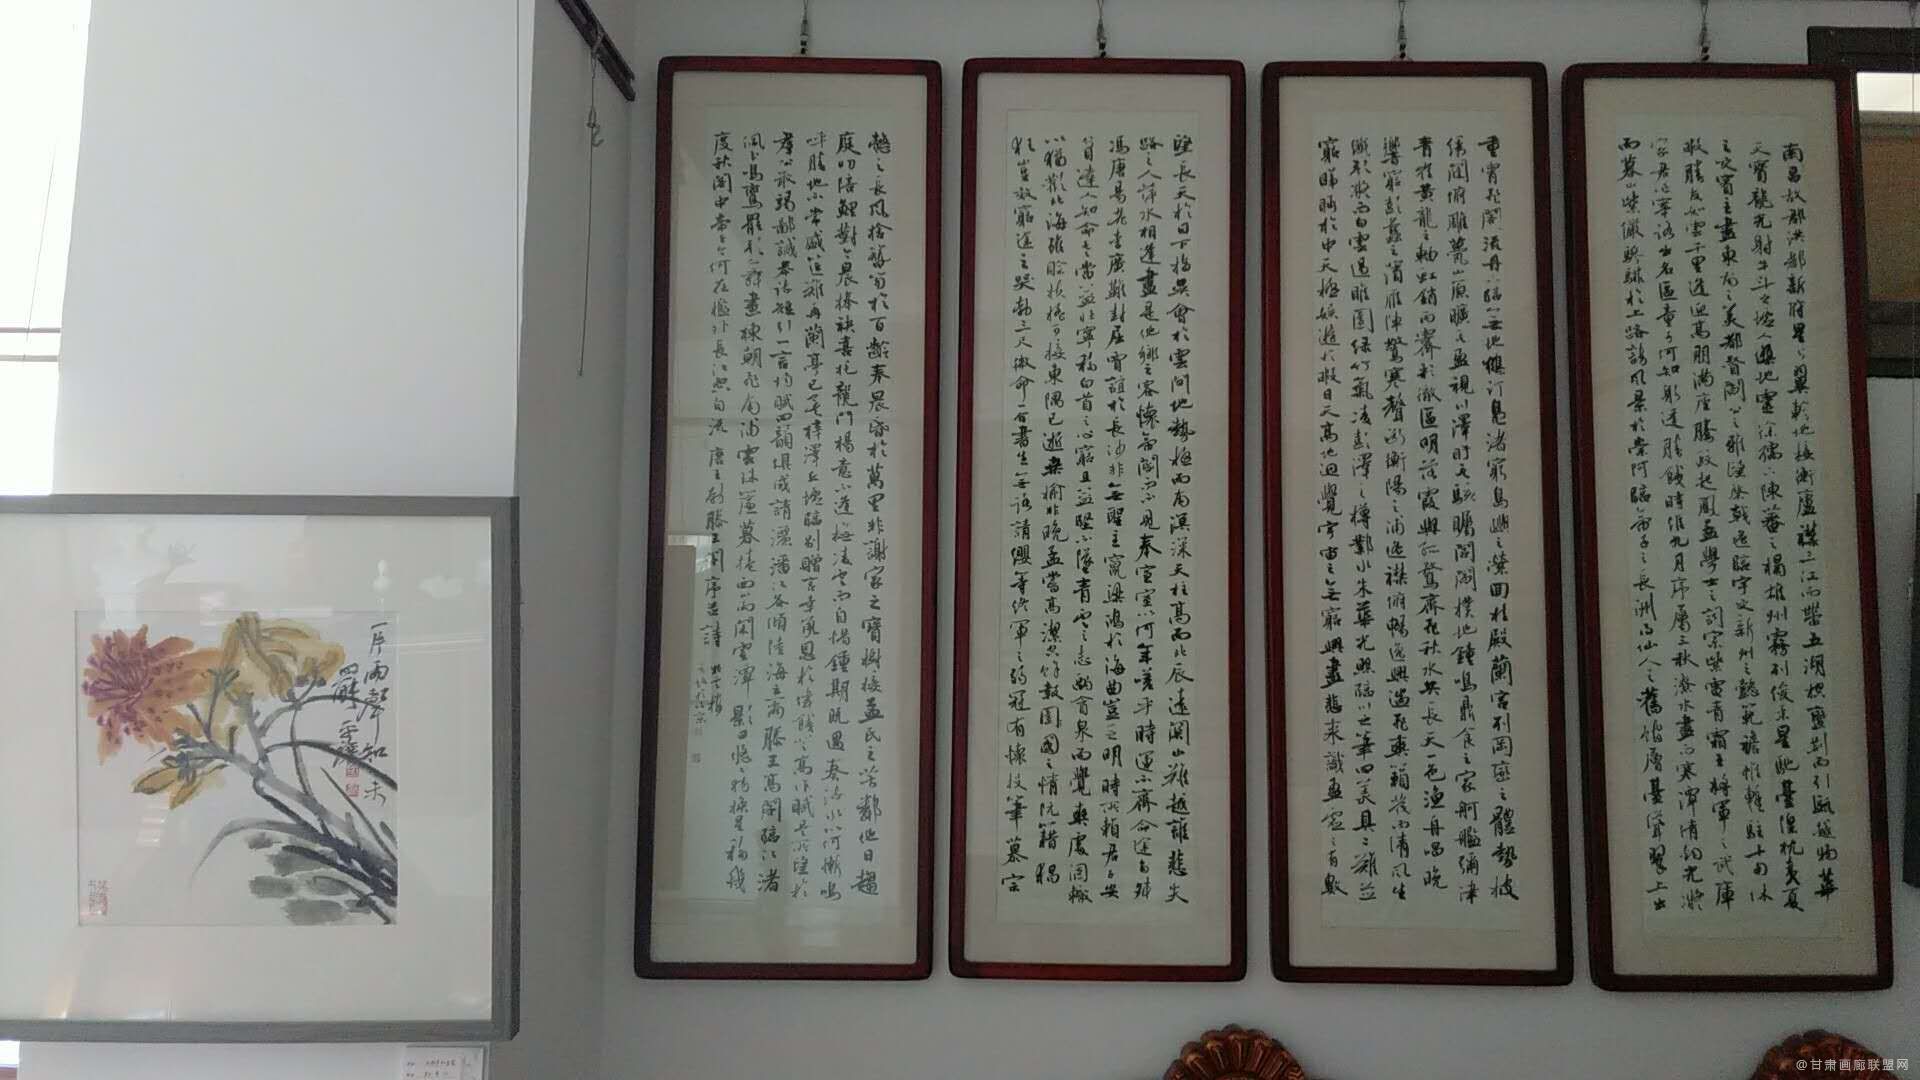 南昌故郡洪都新府星分翼軫地接衡廬襟三江而帶五湖控蠻荊而引甌越物華
天寶龍光射牛斗之墟人傑地靈徐孺下陳蕃之榻雄州霧列俊采星馳臺隍枕夷夏
之交賓主盡東南之美都督閻公之雅望棨戟遙臨宇文新州之懿範襜帷暫駐十旬休
暇勝友如雲千里逢迎高朋滿座騰蛟起鳳孟學士之詞宗紫電青霜王將軍之武庫
家君作宰路出名區童子何知躬逢勝餞時維九月序屬三秋潦水盡而寒潭清烟光凝
而暮山紫儼驂騑於上路訪風景於崇阿臨帝子之長洲得仙人之舊館層臺聳翠上出
重霄飛閣流丹下臨無地鶴汀鳧渚窮島嶼之縈回桂殿蘭宮列岡巒之體勢披
繡闥俯雕甍山原曠其盈視川澤盱其駭矚閭閻撲地鐘鳴鼎食之家舸艦彌津
青雀黃龍之軸虹銷雨霽彩徹區明落霞與孤鶩齊飛秋水共長天一色漁舟唱晚
響窮彭蠡之濱雁陣驚寒聲斷衡陽之浦遙襟俯暢逸興遄飛爽籟發而清風生
纖歌凝而白雲遏睢園綠竹氣凌彭澤之樽鄴水朱華光照臨川之筆四美具二難並
窮睇眄於中天極娛遊於暇日天高地迥覺宇宙之無窮興盡悲來識盈虛之有數
望長天於日下指吳會於雲間地勢極而南溟深天柱高而北辰遠關山難越誰悲失
路之人萍水相逢盡是他鄉之客懷帝閽而不見奉宣室以何年嗟乎時運不齊命途多舛
馮唐易老李廣難封屈賈誼於長沙非無聖主竄梁鴻於海曲豈乏明時所賴君子安
貧達人知命老當益壯寧移白首之心窮且益堅不墜青雲之志酌貪泉而覺爽處涸轍
以猶歡北海雖賒扶搖可接東隅已逝桑榆非晚孟嘗高潔空餘報國之情阮籍猖
狂豈效窮途之哭勃三尺微命一介書生無路請纓等終軍之弱冠有懷投筆慕宗
愨之長風捨簪笏於百齡奉晨昏於萬里非謝家之寶樹接孟氏之芳鄰他日趨
庭叨陪鯉對今晨捧袂喜托龍門楊意不逢撫凌雲而自惜鍾期既遇奏流水以何慚嗚
呼勝地不常盛筵難再蘭亭已矣梓澤丘墟臨別贈言幸承恩於偉餞登高作賦是所望於
群公敢竭鄙誠恭疏短引一言均賦四韻俱成請灑潘江各傾陸海云爾滕王高閣臨江渚
佩玉鳴鸞罷歌舞畫棟朝飛南浦雲珠簾暮捲西山雨閑雲潭影日悠悠物換星移幾
度秋閣中帝子今何在檻外長江空自流 唐王勃滕王閣序并詩
一片雨聲知未
罷
@甘肃画廊联盟网